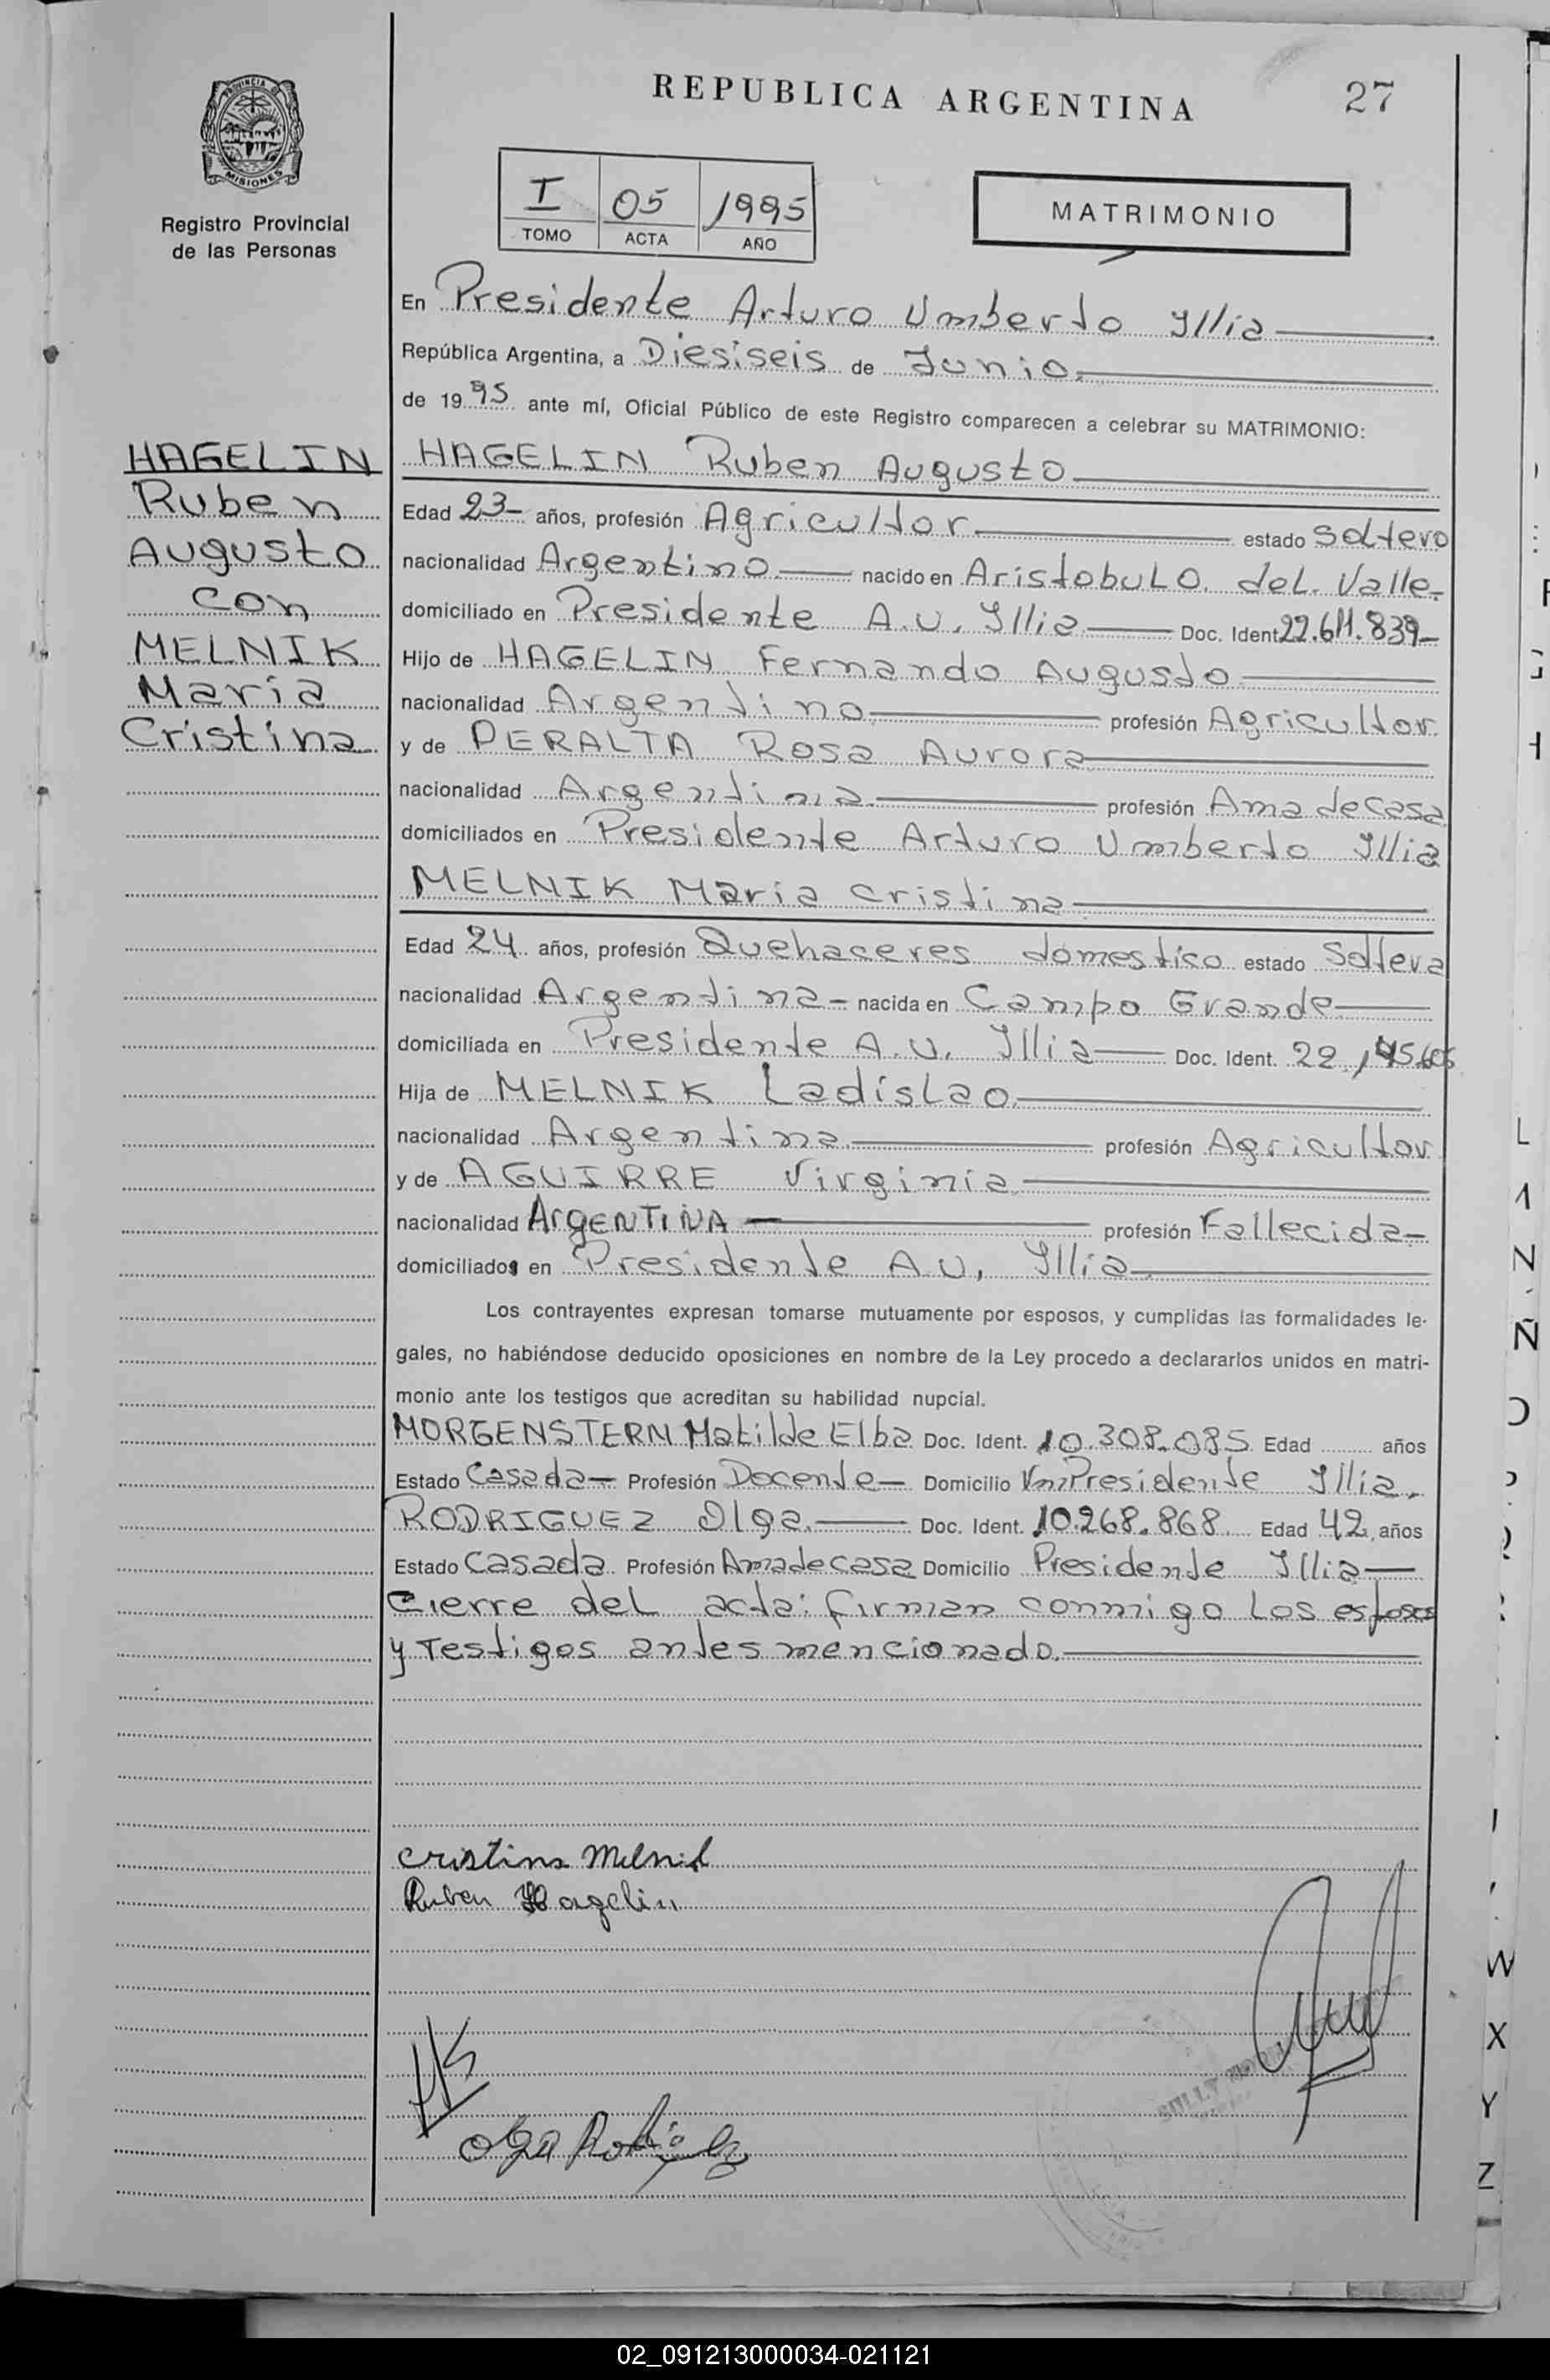 REPUBLICA ARGENTINA
27
PROVINCIA DE
MISIONES
Registro Provincial
de las Personas
I 05 1995
TOMO ACTA AÑO
MATRIMONIO
En Presidente Arturo Umberto Illia
República Argentina, a Diesiseis de Junio.
de 1995 ante mí, Oficial Público de este Registro comparecen a celebrar su MATRIMONIO:
HAGELIN
Ruben
Augusto
con
MELNIK
Maria
Cristina
HAGELIN Ruben Augusto
Edad 23- años, profesión Agricultor estado Soltero
nacionalidad Argentino nacido en AristobuLo. deL. Valle-
domiciliado en Presidente A.U. Illia Doc. Ident. 22.611.839-
Hijo de HAGELIN Fernando Augusto
nacionalidad Argentino profesión Agricultor
y de PERALTA Rosa Aurora
nacionalidad Argentina profesión Ama de Casa
domiciliados en Presidente Arturo Umberto Illia
MELNIK Maria Cristina
Edad 24 años, profesión Quehaceres domestico estado Soltera
nacionalidad Argentina- nacida en Campo Grande
domiciliada en Presidente A.U. Illia Doc. Ident. 22,
Hija de MELNIK Ladislao
nacionalidad Argentina profesión Agricultor
y de AGUIRRE Virginia
nacionalidad ARgENTINA profesión Fallecida-
domiciliados en Presidente A.U, Illia
Los contrayentes expresan tomarse mutuamente por esposos, y cumplidas las formalidades le-
gales, no habiéndose deducido oposiciones en nombre de la Ley procedo a declararlos unidos en matri-
monio ante los testigos que acreditan su habilidad nupcial.
MORGENSTERN Matilde Elba Doc. Ident. 10.308.085 Edad años
Estado Casada- Profesión Docente- Domicilio Presidente Illia.
RODRIGUEZ Olga. Doc. Ident. 10.268.868 Edad 42 años
Estado Casada Profesión Ama de casa Domicilio Presidente Illia
Cierre del acta: firman conmigo los esposos
y Testigos antes mencionado.
Cristina Melnik
Ruben Hagelin
Olga Rodriguez
L
N
Ñ
W
X
Y
Z
02_091213000034-021121